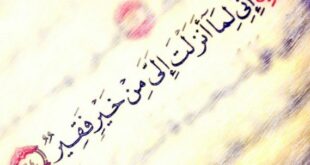 إِنِّي لِمَا أَنزَلْتَ إِلَيَّ مِنْ خَيْرٍ فَقِيرٌ